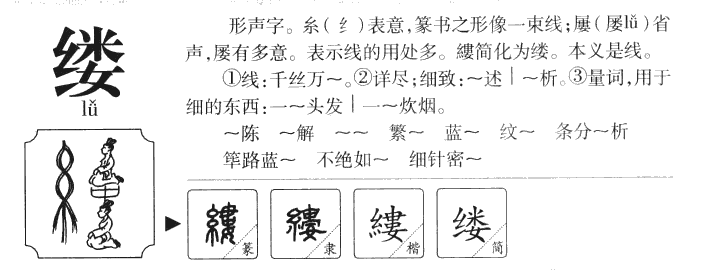 缕
lǚ
形声字。糸(纟)表意,篆书之形像一束线;屢(屡lǚ)省
声,屡有多意。表示线的用处多。縷简化为缕。本义是线。
①线:千丝万~。②详尽;细致:~述|~析。③量词,用于
细的东西:一~头发|一~炊烟。
~陈 ~解 ~~ 繁~ 蓝~ 纹~ 条分~析
筚路蓝~ 不绝如~ 细针密~
縷 篆
縷 隶
縷 楷
缕 简